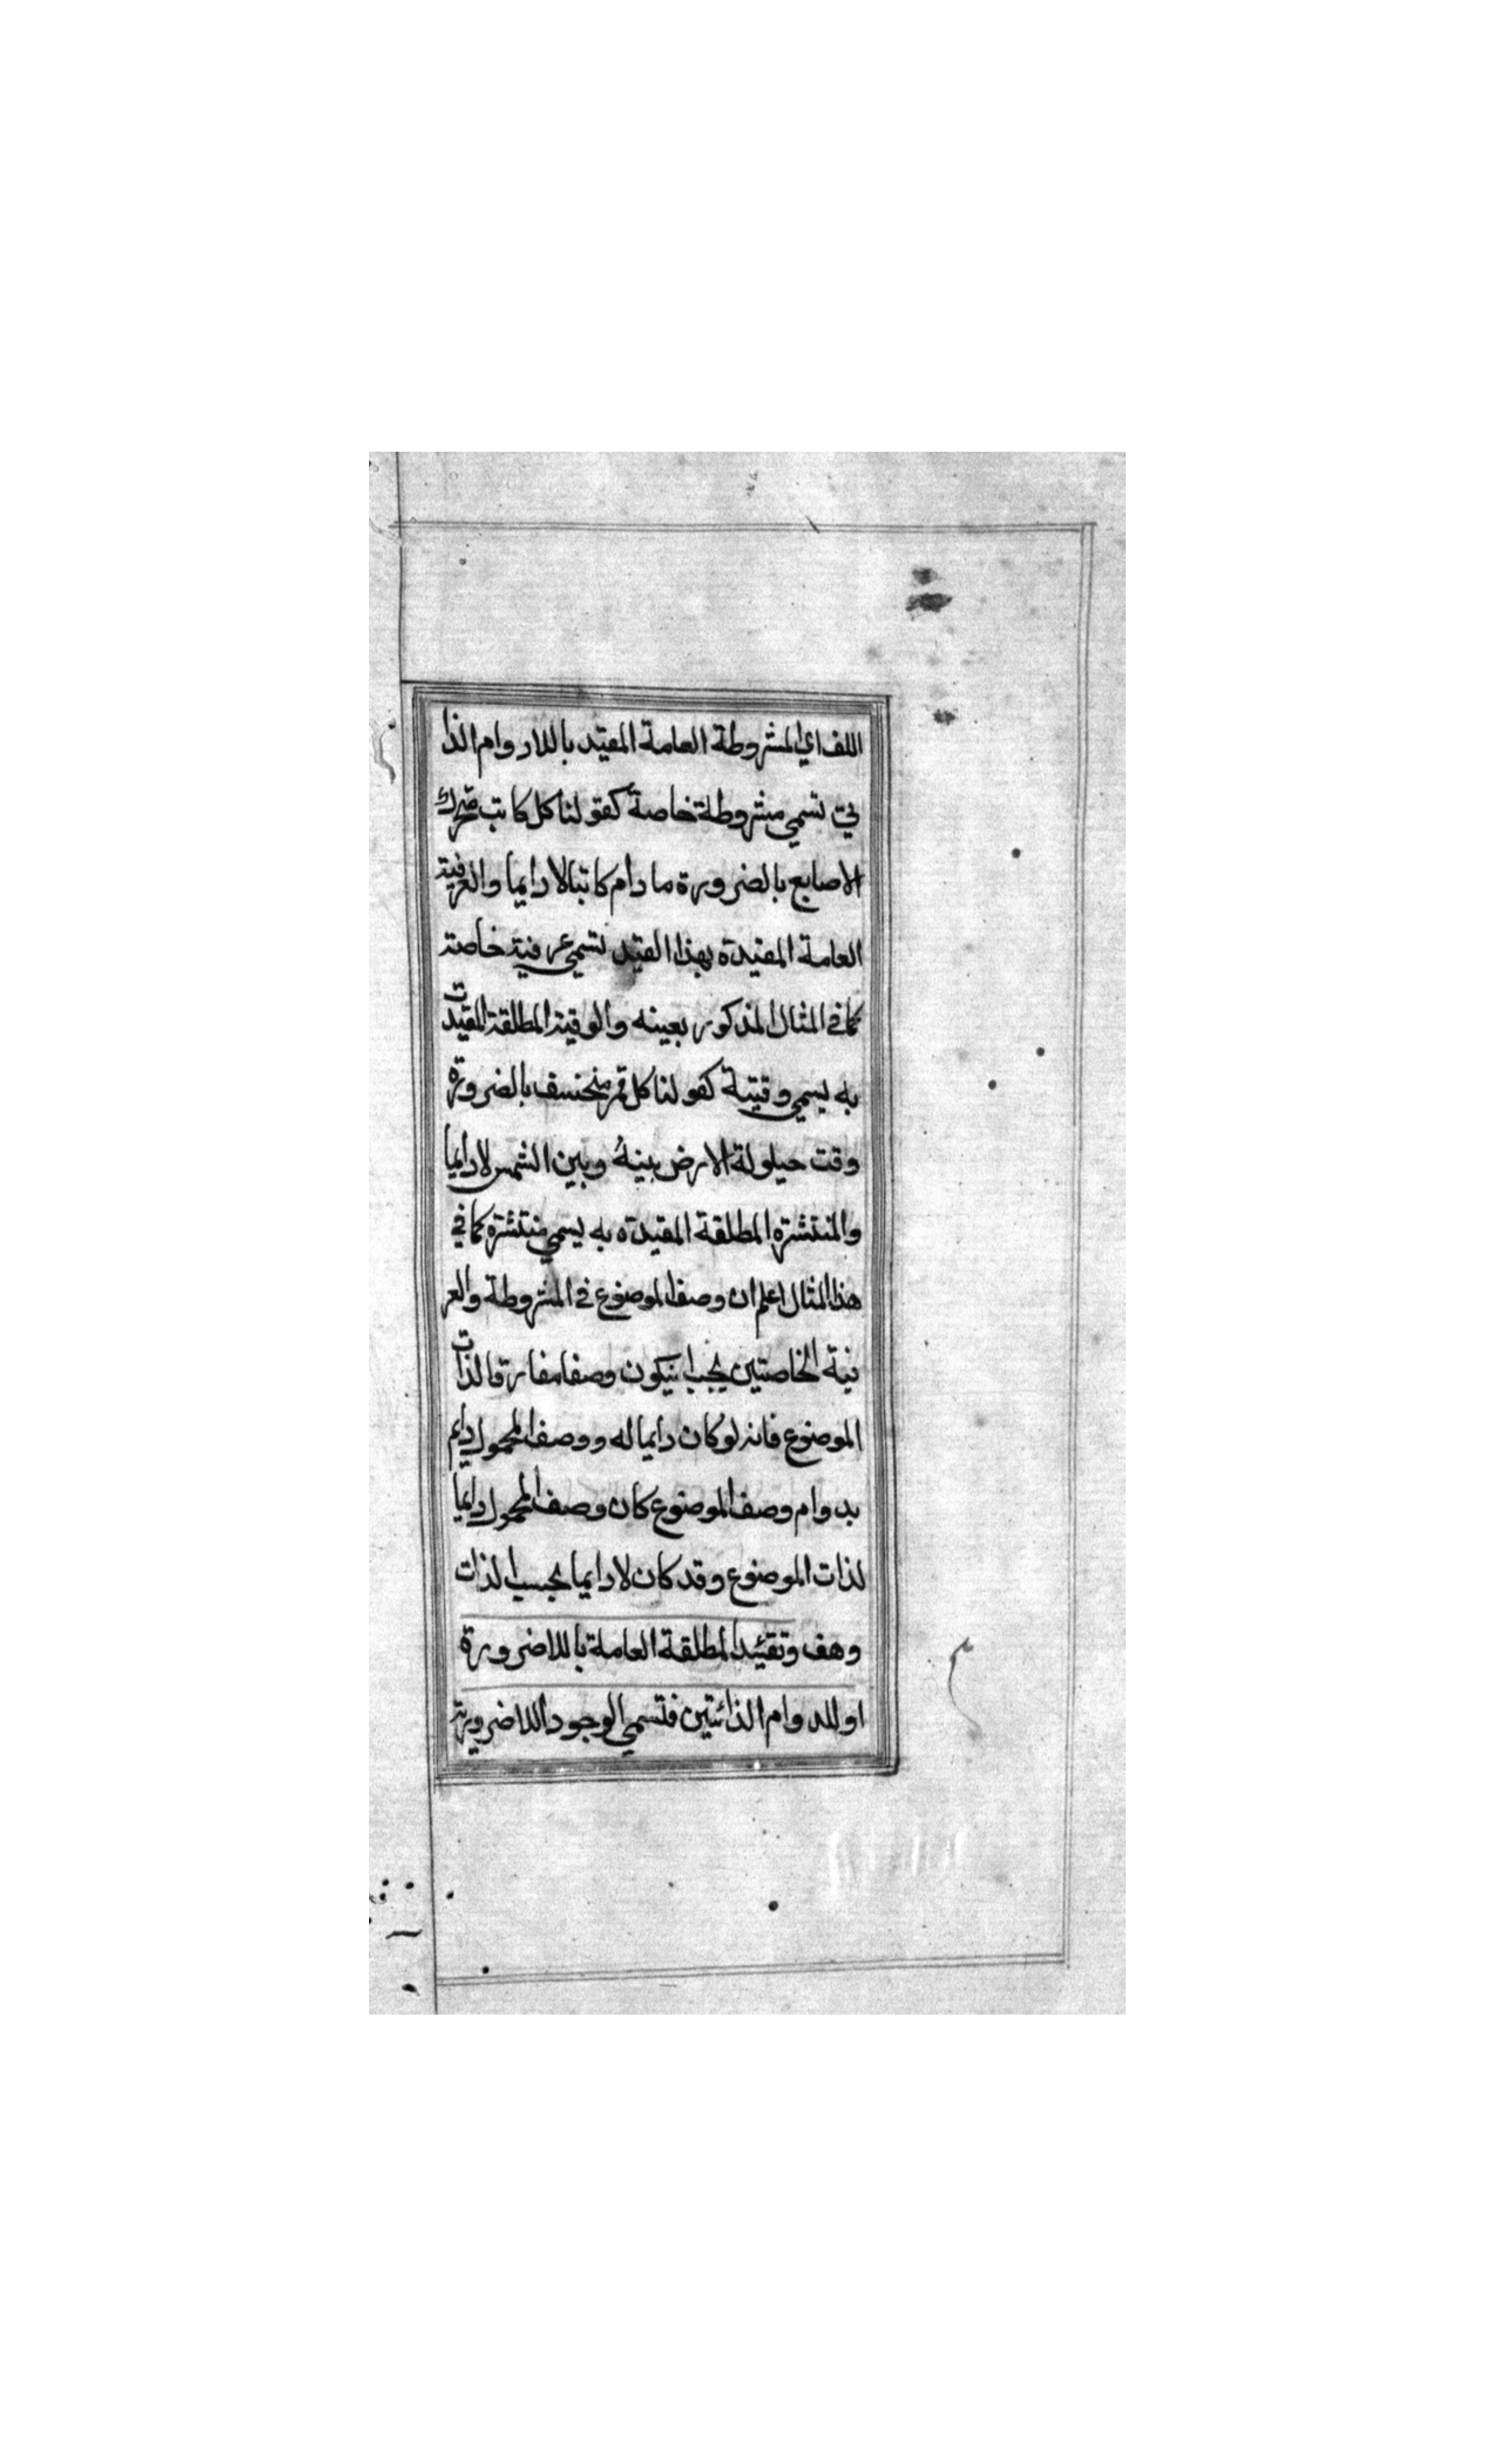 اللف اي المشروطة العامة المقيد باللادوام الذا
تي تسمي مشروطة خاصة كقولنا كل كاتب متحرك
الاصابع بالضرورة ما دام كاتبا لا دايما والعرفية
العامة المقيدة بهذا القيد تسمي عرفية خاصة
كما في المثال المذكور بعينه والوقتية المطلقة المقيدت
به يسمي وقتية كقولنا كل قمر منخسف بالضرورة
وقت حيلولة الارض بينهُ وبين الشمس لا دايما
والمنتشرة المطلقة المقيدة به يسمي منتشرة كما في
هذا المثال اعلم ان وصف الموضوع في المشروطة والعر
فية الخاصتين يجب انيكون وصفا مفارقا لذات
الموضوع فانه لو كان دايما له ووصف المحمول دايم
بدوام وصف الموضوع كان وصف المحمول دايما
لذات الموضوع وقد كان لا دايما بحسب الذات
وهف وتقئيد المطلقة العامة باللاضرورة
او للدوام الذائتين فتسمي الوجود اللاضروية